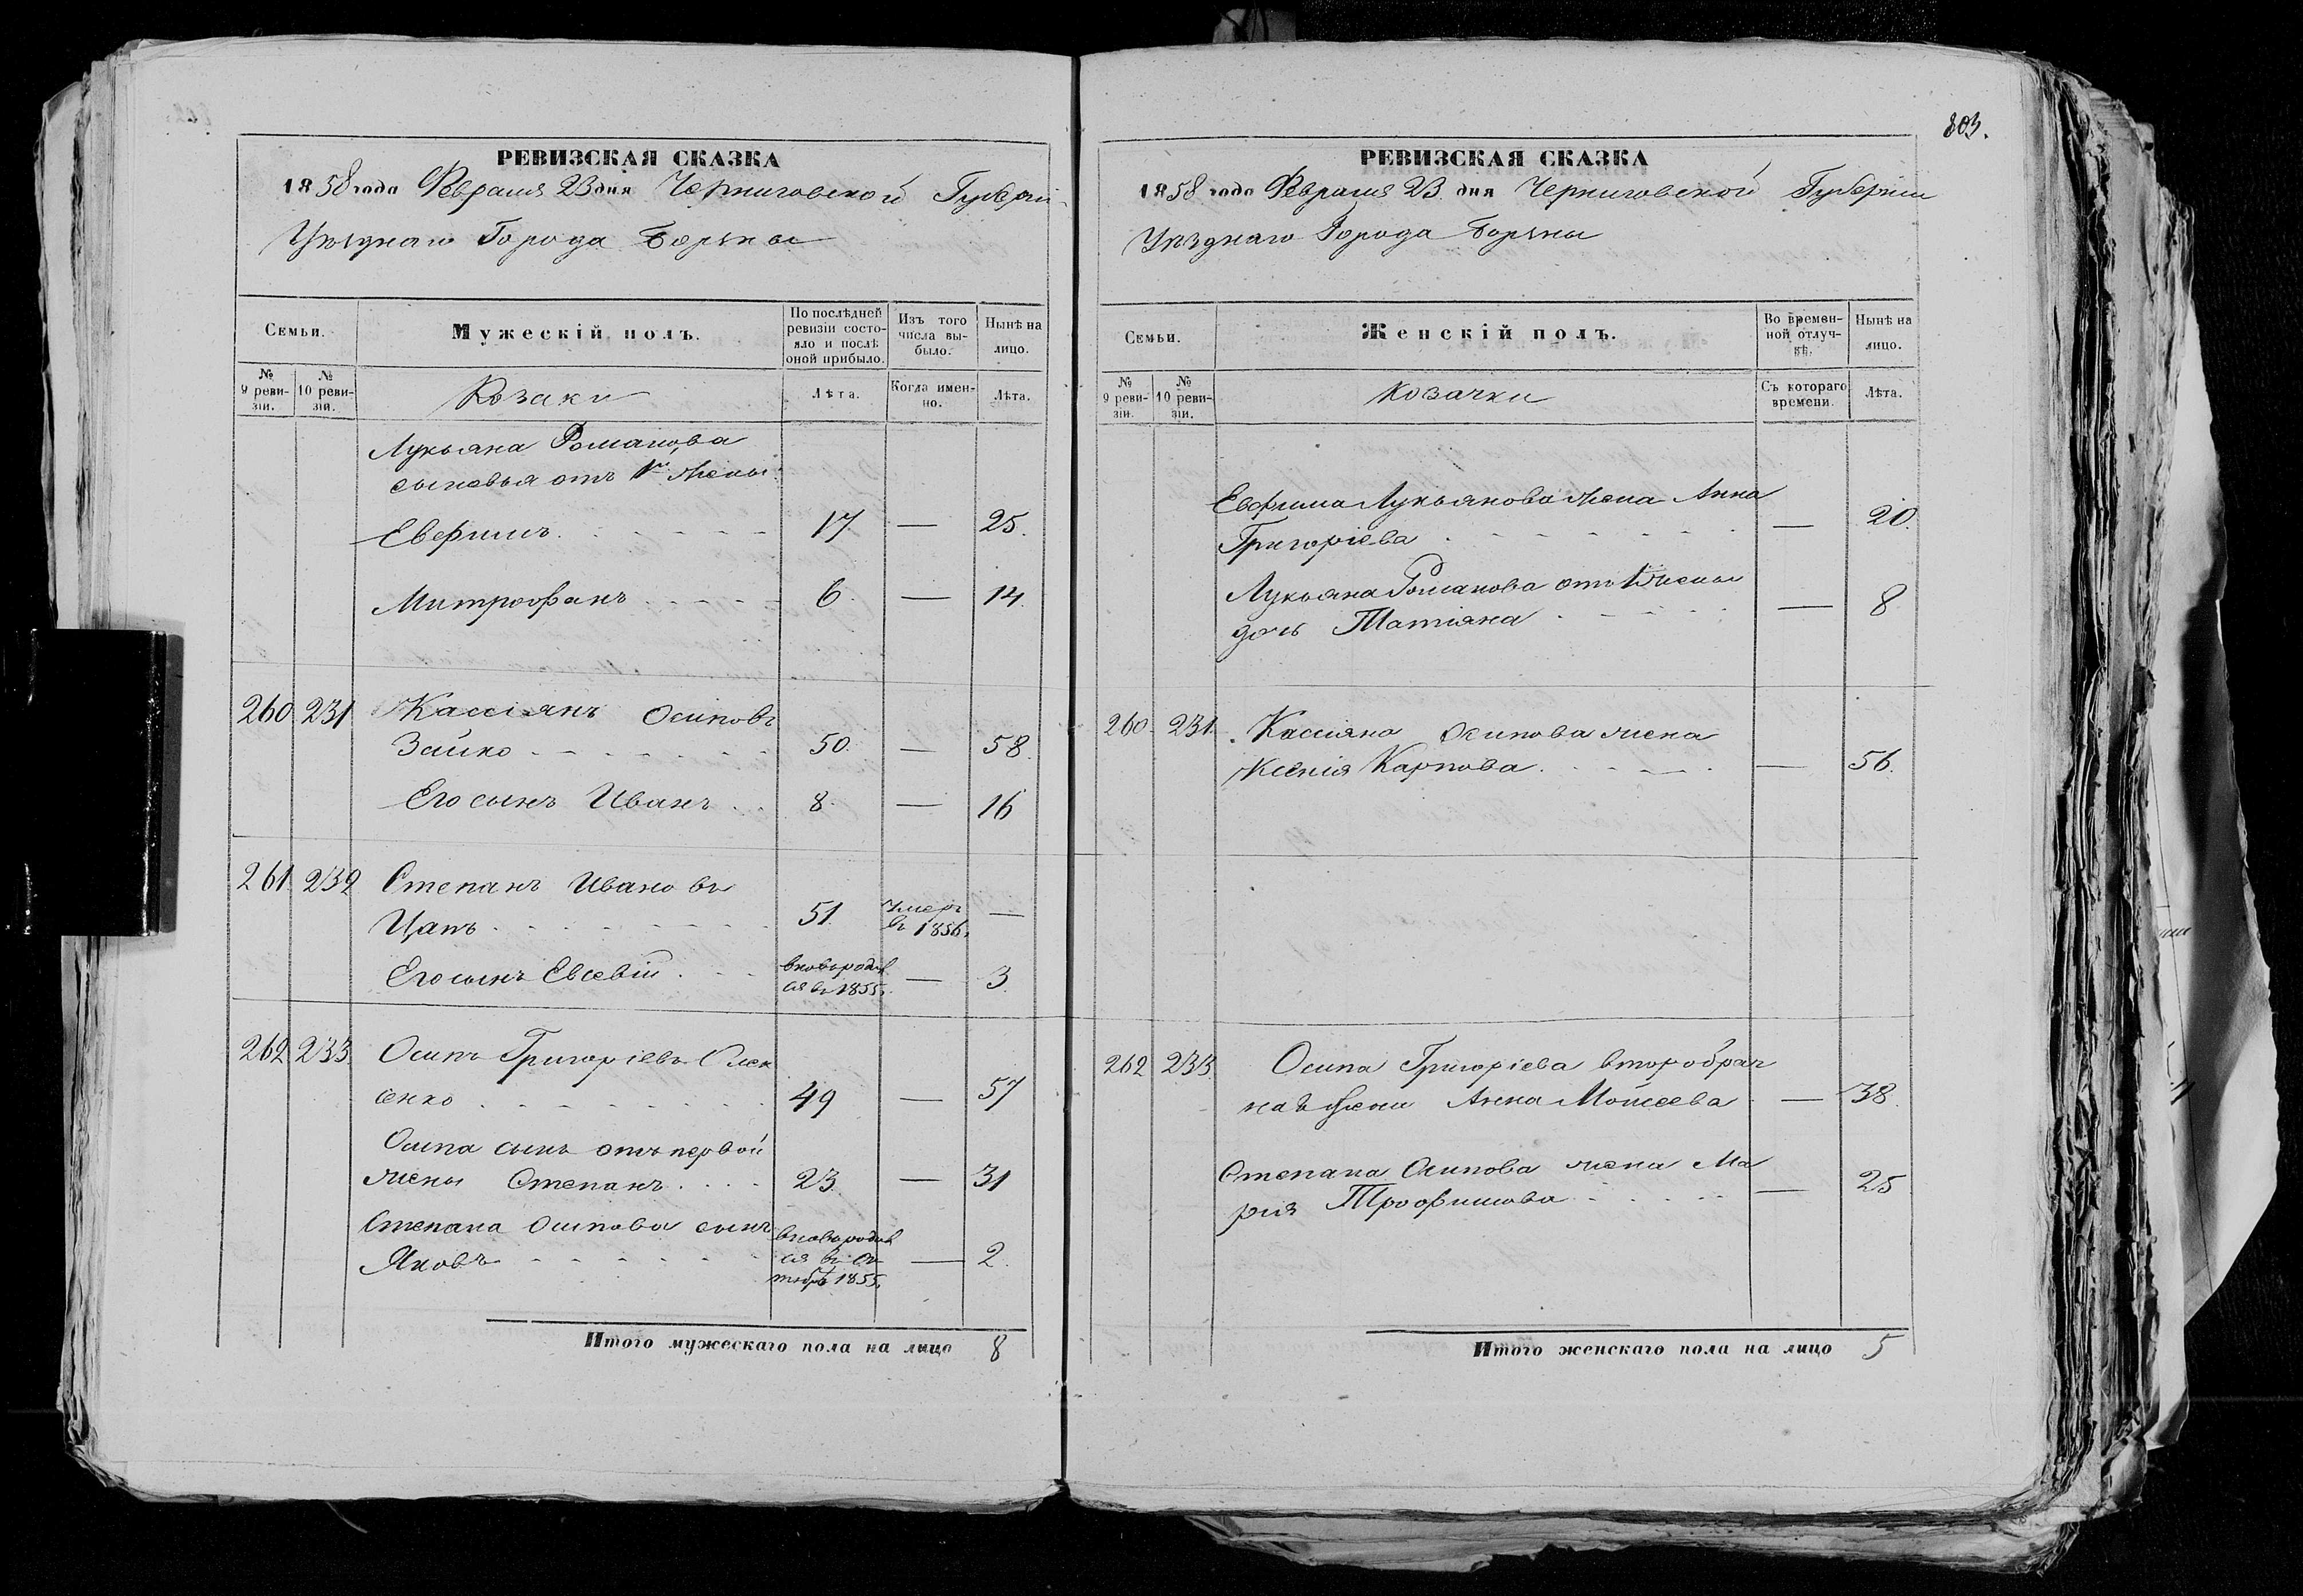 803.
РЕВИЗСКАЯ СКАЗКА
1858 года Февраля 23 дня Черниговской Губерніи
Уѣзднаго Города Борзны
Семьи.
Мужескій полъ.
По послѣдней ревизіи состояло и послѣ оной прибыло.
Изъ того числа выбыло.
Нынѣ на лицо.
№ 9 ревизіи.
№ 10 ревизіи.
Козаки
Лѣта.
Когда именно.
Лѣта.
Лукьяна Романова
сыновья отъ 1й жены
Евфимъ 17 — 25.
Митрофанъ 6 — 14.
260 231 Кассіянъ Осиповъ
Зайко 50 — 58.
Его сынъ Иванъ 8 — 16
261 232 Степанъ Ивановъ
Цапъ 51 умеръ въ 1856. —
Его сынъ Евсевій вновьродився въ 1855. — 3.
262 233 Осипъ Григоріевъ Олек
сенко 49 — 57
Осипа сынъ отъ первой
жены Степанъ 23. — 31
Степана Осипова сынъ
Яковъ вновьродився въ октябрѣ 1855. — 2.
Итого мужескаго пола на лицо 8
РЕВИЗСКАЯ СКАЗКА
1858 года Февраля 23 дня Черниговской Губерніи
Уѣзднаго Города Борзны
Семьи.
Женскій полъ.
Во временной отлучкѣ.
Нынѣ на лицо.
№ 9 ревизіи.
№ 10 ревизіи.
Козачки
Съ котораго времени.
Лѣта.
Евфима Лукьянова жена Анна
Григоріева — 20.
Лукьяна Романова отъ 1 жены
дочь Татіяна — 8
260. 231. Кассіяна Осипова жена
Ксенія Карпова — 56.
262 233. Осипа Григоріева второбрач
ная жена Анна Моисеева — 38.
Степана Осипова жена Ма
рия Трофимова — 25
Итого женскаго пола на лицо 5